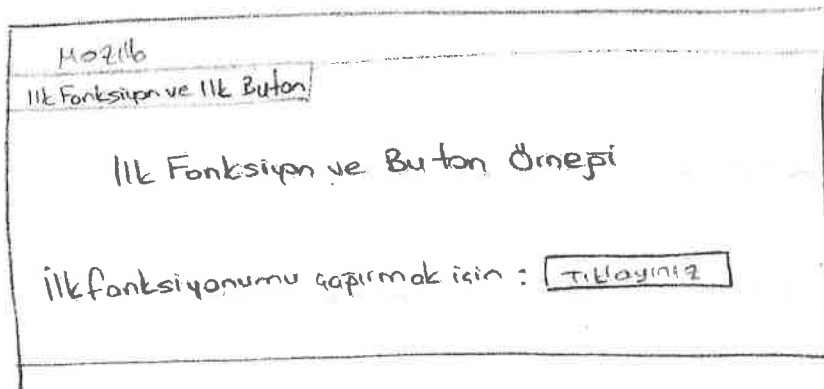 Mozilla
İlk Fonksiyon ve İlk Buton
İlk Fonksiyon ve Buton Örneği
İlk fonksiyonumu çağırmak için : Tıklayınız